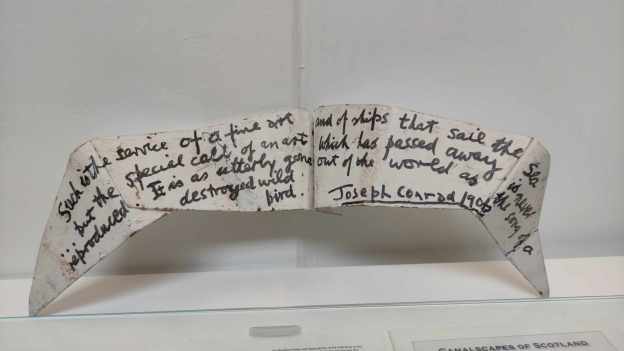 Such is the service of a fine art and of ships that sail the Sea
but the special call of an art which has passed away is never
reproduced It is as utterly gone out of the world as the song of a
destroyed wild
bird.
Joseph Conrad 1906
CANALSCAPES OF SCOTLAND